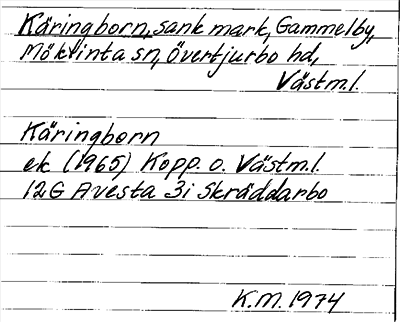 Käringborn, sank mark, Gammelby,
Möklinta sn, Övertjurbo hd,
Västm.l.
Käringborn
ek (1965) Kopp. o. Västm.l.
12G Avesta 3i Skräddarbo
K.M. 1974